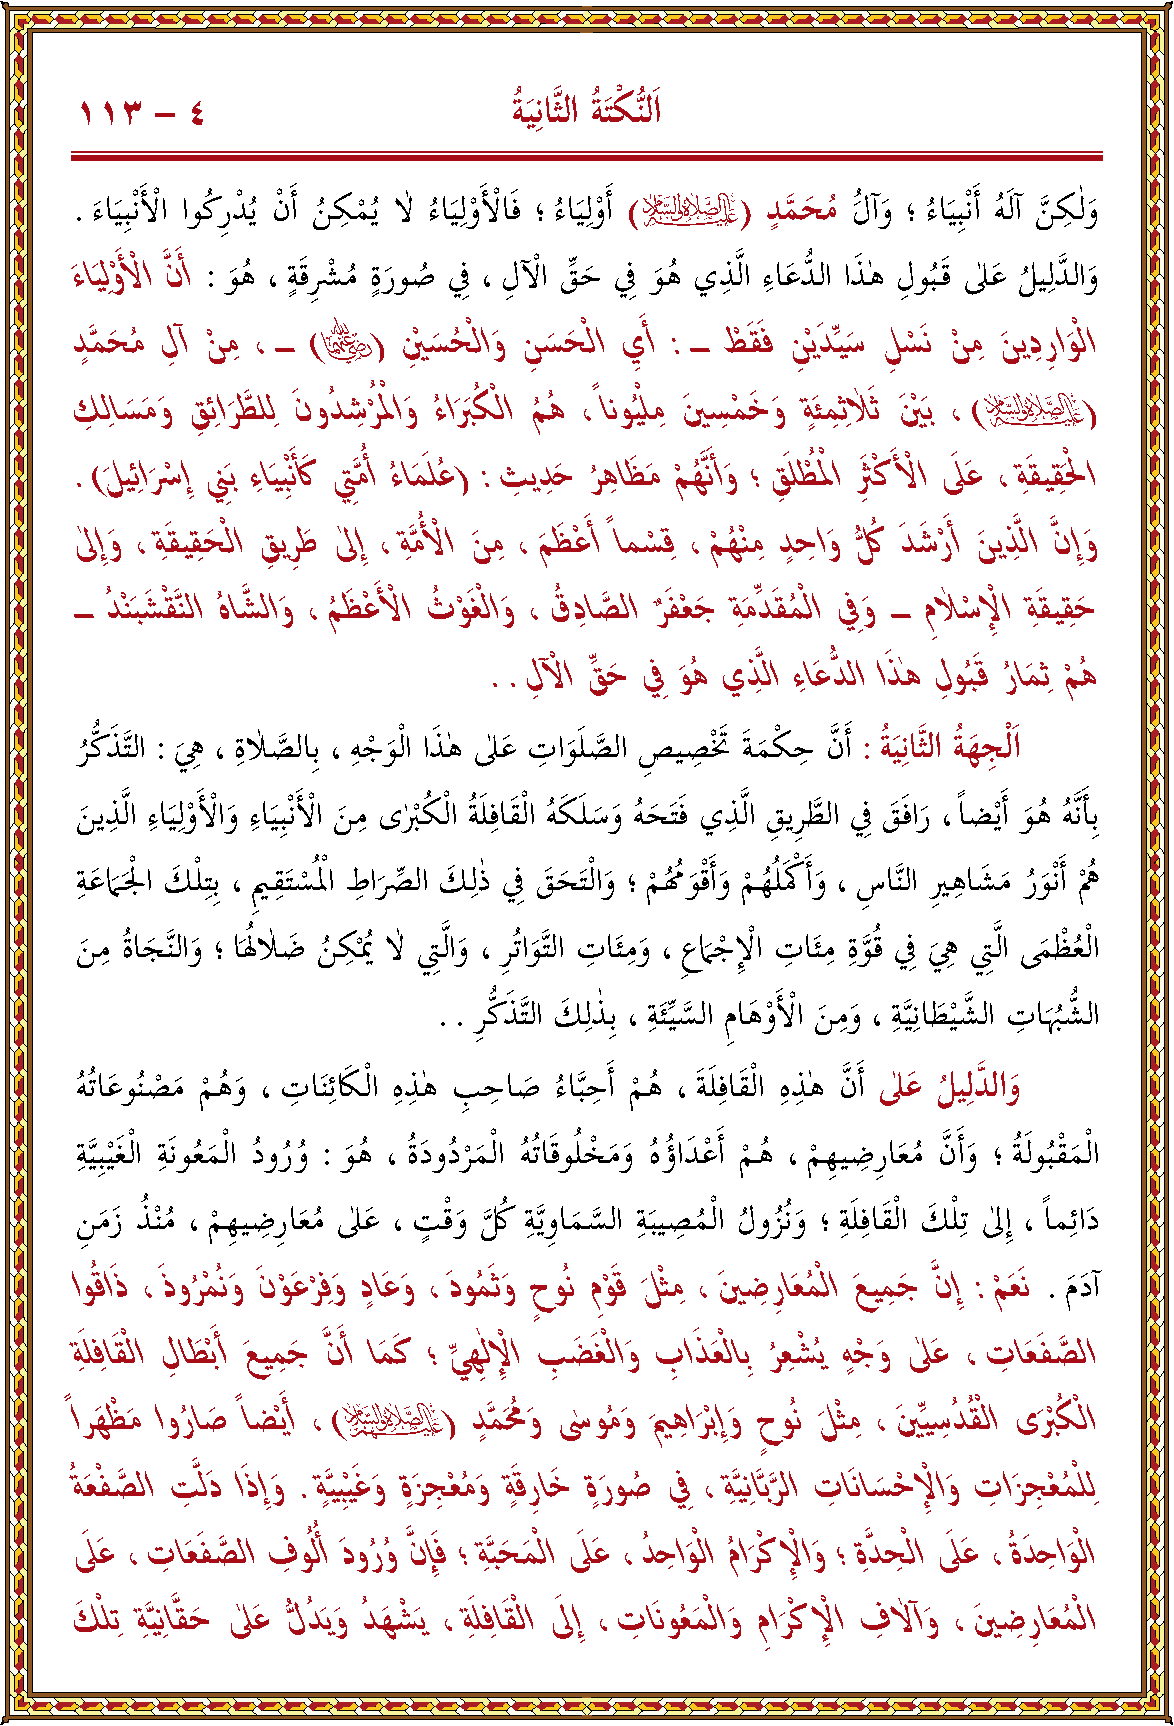 ٤ – ١١٣ اَلنُّكْتَةُ الثَّانِيَةُ
وَلٰكِنَّ آلَهُ أَنْبِيَاءُ ؛ وَآلُ مُحَمَّدٍ (عَلَيْهِ الصَّلَاةُ وَالسَّلَامُ) أَوْلِيَاءُ ؛ فَالْأَوْلِيَاءُ لاٰ يُمْكِنُ أَنْ يُدْرِكُوا الْأَنْبِيَاءَ .
وَالدَّلِيلُ عَلٰى قَبُولِ هٰذَا الدُّعَاءِ الَّذِي هُوَ فِي حَقِّ الْآلِ ، فِي صُورَةٍ مُشْرِقَةٍ ، هُوَ : أَنَّ الْأَوْلِيَاءَ
الْوَارِدِينَ مِنْ نَسْلِ سَيِّدَيْنِ فَقَطْ ــ : أَيِ الْحَسَنِ وَالْحُسَيْنِ (رَضِيَ اللهُ عَنْهُمَا) ــ ، مِنْ آلِ مُحَمَّدٍ
(عَلَيْهِ الصَّلَاةُ وَالسَّلَامُ) ، بَيْنَ ثَلاٰثِمِئَةٍ وَخَمْسِينَ مِلْيُوناً ، هُمُ الْكُبَرَاءُ وَالْمُرْشِدُونَ لِلطَّرَائِقِ وَمَسَالِكِ
الْحَقِيقَةِ ، عَلَى الْأَكْثَرِ الْمُطْلَقِ ؛ وَأَنَّهُمْ مَظَاهِرُ حَدِيثِ : (عُلَمَاءُ أُمَّتِي كَأَنْبِيَاءِ بَنِي إِسْرَائِيلَ) .
وَإِنَّ الَّذِينَ أَرْشَدَ كُلُّ وَاحِدٍ مِنْهُمْ ، قِسْماً أَعْظَمَ ، مِنَ الْأُمَّةِ ، إِلٰى طَرِيقِ الْحَقِيقَةِ ، وَإِلٰى
حَقِيقَةِ الْإِسْلاٰمِ ــ وَفِي الْمُقَدِّمَةِ جَعْفَرٌ الصَّادِقُ ، وَالْغَوْثُ الْأَعْظَمُ ، وَالشَّاهُ النَّقْشَبَنْدُ ــ
هُمْ ثِمَارُ قَبُولِ هٰذَا الدُّعَاءِ الَّذِي هُوَ فِي حَقِّ الْآلِ . .
اَلْجِهَةُ الثَّانِيَةُ : أَنَّ حِكْمَةَ تَخْصِيصِ الصَّلَوَاتِ عَلٰى هٰذَا الْوَجْهِ ، بِالصَّلاٰةِ ، هِيَ : التَّذَكُّرُ
بِأَنَّهُ هُوَ أَيْضاً ، رَافَقَ فِي الطَّرِيقِ الَّذِي فَتَحَهُ وَسَلَكَهُ الْقَافِلَةُ الْكُبْرٰى مِنَ الْأَنْبِيَاءِ وَالْأَوْلِيَاءِ الَّذِينَ
هُمْ أَنْوَرُ مَشَاهِيرِ النَّاسِ ، وَأَكْمَلُهُمْ وَأَقْوَمُهُمْ ؛ وَالْتَحَقَ فِي ذٰلِكَ الصِّرَاطِ الْمُسْتَقِيمِ ، بِتِلْكَ الْجَمَاعَةِ
الْعُظْمَى الَّتِي هِيَ فِي قُوَّةِ مِئَاتِ الْإِجْمَاعِ ، وَمِئَاتِ التَّوَاتُرِ ، وَالَّتِي لاٰ يُمْكِنُ ضَلاٰلُهَا ؛ وَالنَّجَاةُ مِنَ
الشُّبُهَاتِ الشَّيْطَانِيَّةِ ، وَمِنَ الْأَوْهَامِ السَّيِّئَةِ ، بِذٰلِكَ التَّذَكُّرِ . .
وَالدَّلِيلُ عَلٰى أَنَّ هٰذِهِ الْقَافِلَةَ ، هُمْ أَحِبَّاءُ صَاحِبِ هٰذِهِ الْكَائِنَاتِ ، وَهُمْ مَصْنُوعَاتُهُ
الْمَقْبُولَةُ ؛ وَأَنَّ مُعَارِضِيهِمْ ، هُمْ أَعْدَاؤُهُ وَمَخْلُوقَاتُهُ الْمَرْدُودَةُ ، هُوَ : وُرُودُ الْمَعُونَةِ الْغَيْبِيَّةِ
دَائِماً ، إِلٰى تِلْكَ الْقَافِلَةِ ؛ وَنُزُولُ الْمُصِيبَةِ السَّمَاوِيَّةِ كُلَّ وَقْتٍ ، عَلٰى مُعَارِضِيهِمْ ، مُنْذُ زَمَنِ
آدَمَ . نَعَمْ : إِنَّ جَمِيعَ الْمُعَارِضِينَ ، مِثْلَ قَوْمِ نُوحٍ وَثَمُودَ ، وَعَادٍ وَفِرْعَوْنَ وَنُمْرُوذَ ، ذَاقُوا
الصَّفَعَاتِ ، عَلٰى وَجْهٍ يُشْعِرُ بِالْعَذَابِ وَالْغَضَبِ الْإِلٰهِيِّ ؛ كَمَا أَنَّ جَمِيعَ أَبْطَالِ الْقَافِلَةِ
الْكُبْرَى الْقُدْسِيِّينَ ، مِثْلَ نُوحٍ وَإِبْرَاهِيمَ وَمُوسٰى وَمُحَمَّدٍ (عَلَيْهِ الصَّلَاةُ وَالسَّلَامُ) ، أَيْضاً صَارُوا مَظْهَراً
لِلْمُعْجِزَاتِ وَالْإِحْسَانَاتِ الرَّبَّانِيَّةِ ، فِي صُورَةٍ خَارِقَةٍ وَمُعْجِزَةٍ وَغَيْبِيَّةٍ . وَإِذَا دَلَّتِ الصَّفْعَةُ
الْوَاحِدَةُ ، عَلَى الْحِدَّةِ ؛ وَالْإِكْرَامُ الْوَاحِدُ ، عَلَى الْمَحَبَّةِ ؛ فَإِنَّ وُرُودَ أُلُوفِ الصَّفَعَاتِ ، عَلَى
الْمُعَارِضِينَ ، وَآلاٰفِ الْإِكْرَامِ وَالْمَعُونَاتِ ، إِلَى الْقَافِلَةِ ، يَشْهَدُ وَيَدُلُّ عَلٰى حَقَّانِيَّةِ تِلْكَ